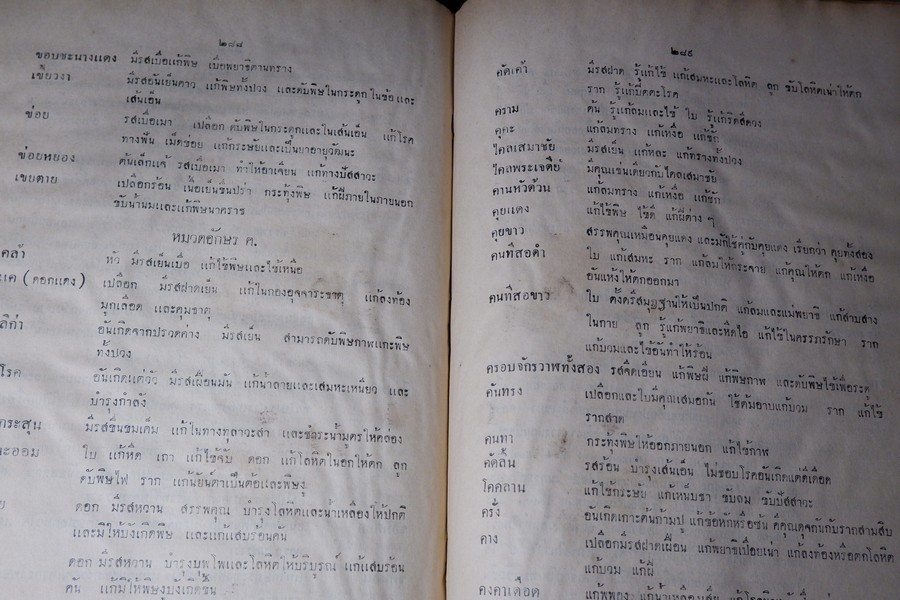 ๒๘๘
ขอบชะนางแดง มีรสเบื่อแก้พิษ เบื่อพยาธิตานทราง
เขี้ยวงา มีรสอันเย็นคาว แก้พิษทั้งปวง และดับพิษในกระดูก ในข้อและ
เส้นเอ็น
ข่อย รสเบื่อเมา เปลือก ดับพิษในกระดูกและในเส้นเอ็น แก้โรค
ทางฟัน เมล็ดข่อย แก้กระษัยและเป็นยาอายุวัฒนะ
ข่อยหยอง ต้นเล็กแด้ รสเบื่อเมา ทำให้อาเจียน แก้ทางปัสสาวะ
เขยตาย เปลือกร้อน เนื้อเย็นขื่นปร่า กระทุ้งพิษ แก้ฝีภายในภายนอก
ขับน้ำนมและแก้พิษนาคราช
หมวดอักษร ค.
คล้า หัว มีรสเย็นเบื่อ แก้ไข้พิษและไข้เหนือ
แค (ดอกแดง) เปลือก มีรสฝาดเย็น แก้ในกองอุจจาระธาตุ แก้ลงท้อง
มูกเลือด และคุมธาตุ
อันเกิดจากปรวดค่าง มีรสเย็น สามารถดับพิษกาฬและพิษ
ทั้งปวง
โรค อันเกิดแต่วัว มีรสเฝื่อนมัน แก้น้ำลายและเสมหะเหนียว และ
บำรุงกำลัง
กระสุน มีรสขื่นขมเค็ม แก้ในทางทุลาวะสา และชำระน้ำมูตรให้คล่อง
ะออม ใบ แก้หืด เถา แก้ไข้จับ ดอก แก้โลหิตในอกให้ตก ลูก
ดับพิษไฟ ราก แก้นัยน์ตาเป็นต้อและพษงู
ดอก มีรสหวาน สรรพคุณ บำรุงโลหิตและน้ำเหลืองให้ปกติ
และมิให้บังเกิดพิษ และแก้แสบร้อนคัน
ดอก มีรสหวาน บำรุงบุพโพและโลหิตให้บริบูรณ์ แก้แสบร้อน
คัน แก้มิให้พิษงูบังเกิดขึ้น
๒๘๙
คัดเค้า มีรสฝาด รู้แก้ไข้ แก้เสมหะและโลหิต ลูก ขับโลหิตเน่าให้ตก
ราก รู้แก้บิตตะโรค
คราม ต้น รู้แก้ลมและไข้ ใบ รู้แก้ริดสีดวง
คุคะ แก้ลมทราง แก้เหงื่อ แก้ชัก
ไคลเสมาชัย มีรสเย็น แก้หละ แก้ทรางทั้งปวง
ไคลพระเจดีย์ มีคุณเช่นเดียวกับไคลเสมาชัย
คานหัวด้วน แก้ลมทราง แก้เหงื่อ แก้ชัก
คุยแดง แก้ไข้พิษ ไข้ผี แก้ฝีต่าง ๆ
คุยขาว สรรพคุณเหมือนคุยแดง และมักใช้คู่กับคุยแดง เรียกว่า คุยทั้งสอง
คนทีสอดำ ใบ แก้เสมหะ ราก แก้ลมให้กระจาย แก้คูณให้ตก แก้เหงื่อ
อันแห้งให้ตกออกมา
คนทีสอขาว ใบ ตั้งตรีสมุฏฐานให้เป็นปกติ แก้ลมและแม่พยาธิ แก้สาบสาง
ในกาย ลูก รู้แก้พยาธิและหืดไอ แก้ไข้ในครรภรักษา ราก
แก้บวมและไข้อันทำให้ร้อน
ครอบจักรวาฬทั้งสอง รสจืดเอียน แก้พิษฝี แก้พิษกาฬ และดับพิษไข้เพื่อระดู
คันทรง เปลือกและใบมีคุณเสมอกัน ใช้ต้มอาบแก้บวม ราก แก้ไข้
รากสาด
คนทา กระทุ้งพิษให้ออกภายนอก แก้ไข้กาฬ
คัดลิ้น รสร้อน บำรุงเส้นเอ็น ไม่ชอบโรคอันเกิดแต่ดีเดือด
โคคลาน แก้ไข้กระษัย แก้เหน็บชา ขับลม ขับปัสสาวะ
ครั่ง อันเกิดเกาะต้นก้ามปู แก้ข้อหักหรือซ้น มีคุณดุจกันกับรากสามสิบ
คาง เปลือกมีรสฝาดเฝื่อน แก้พยาธิเปื่อยเน่า แก้ลงท้องหรือตกโลหิต
แก้บวม แก้ฝี
คงคาเดือด แก้พพุอง แก้น้ำเหลืองเสีย